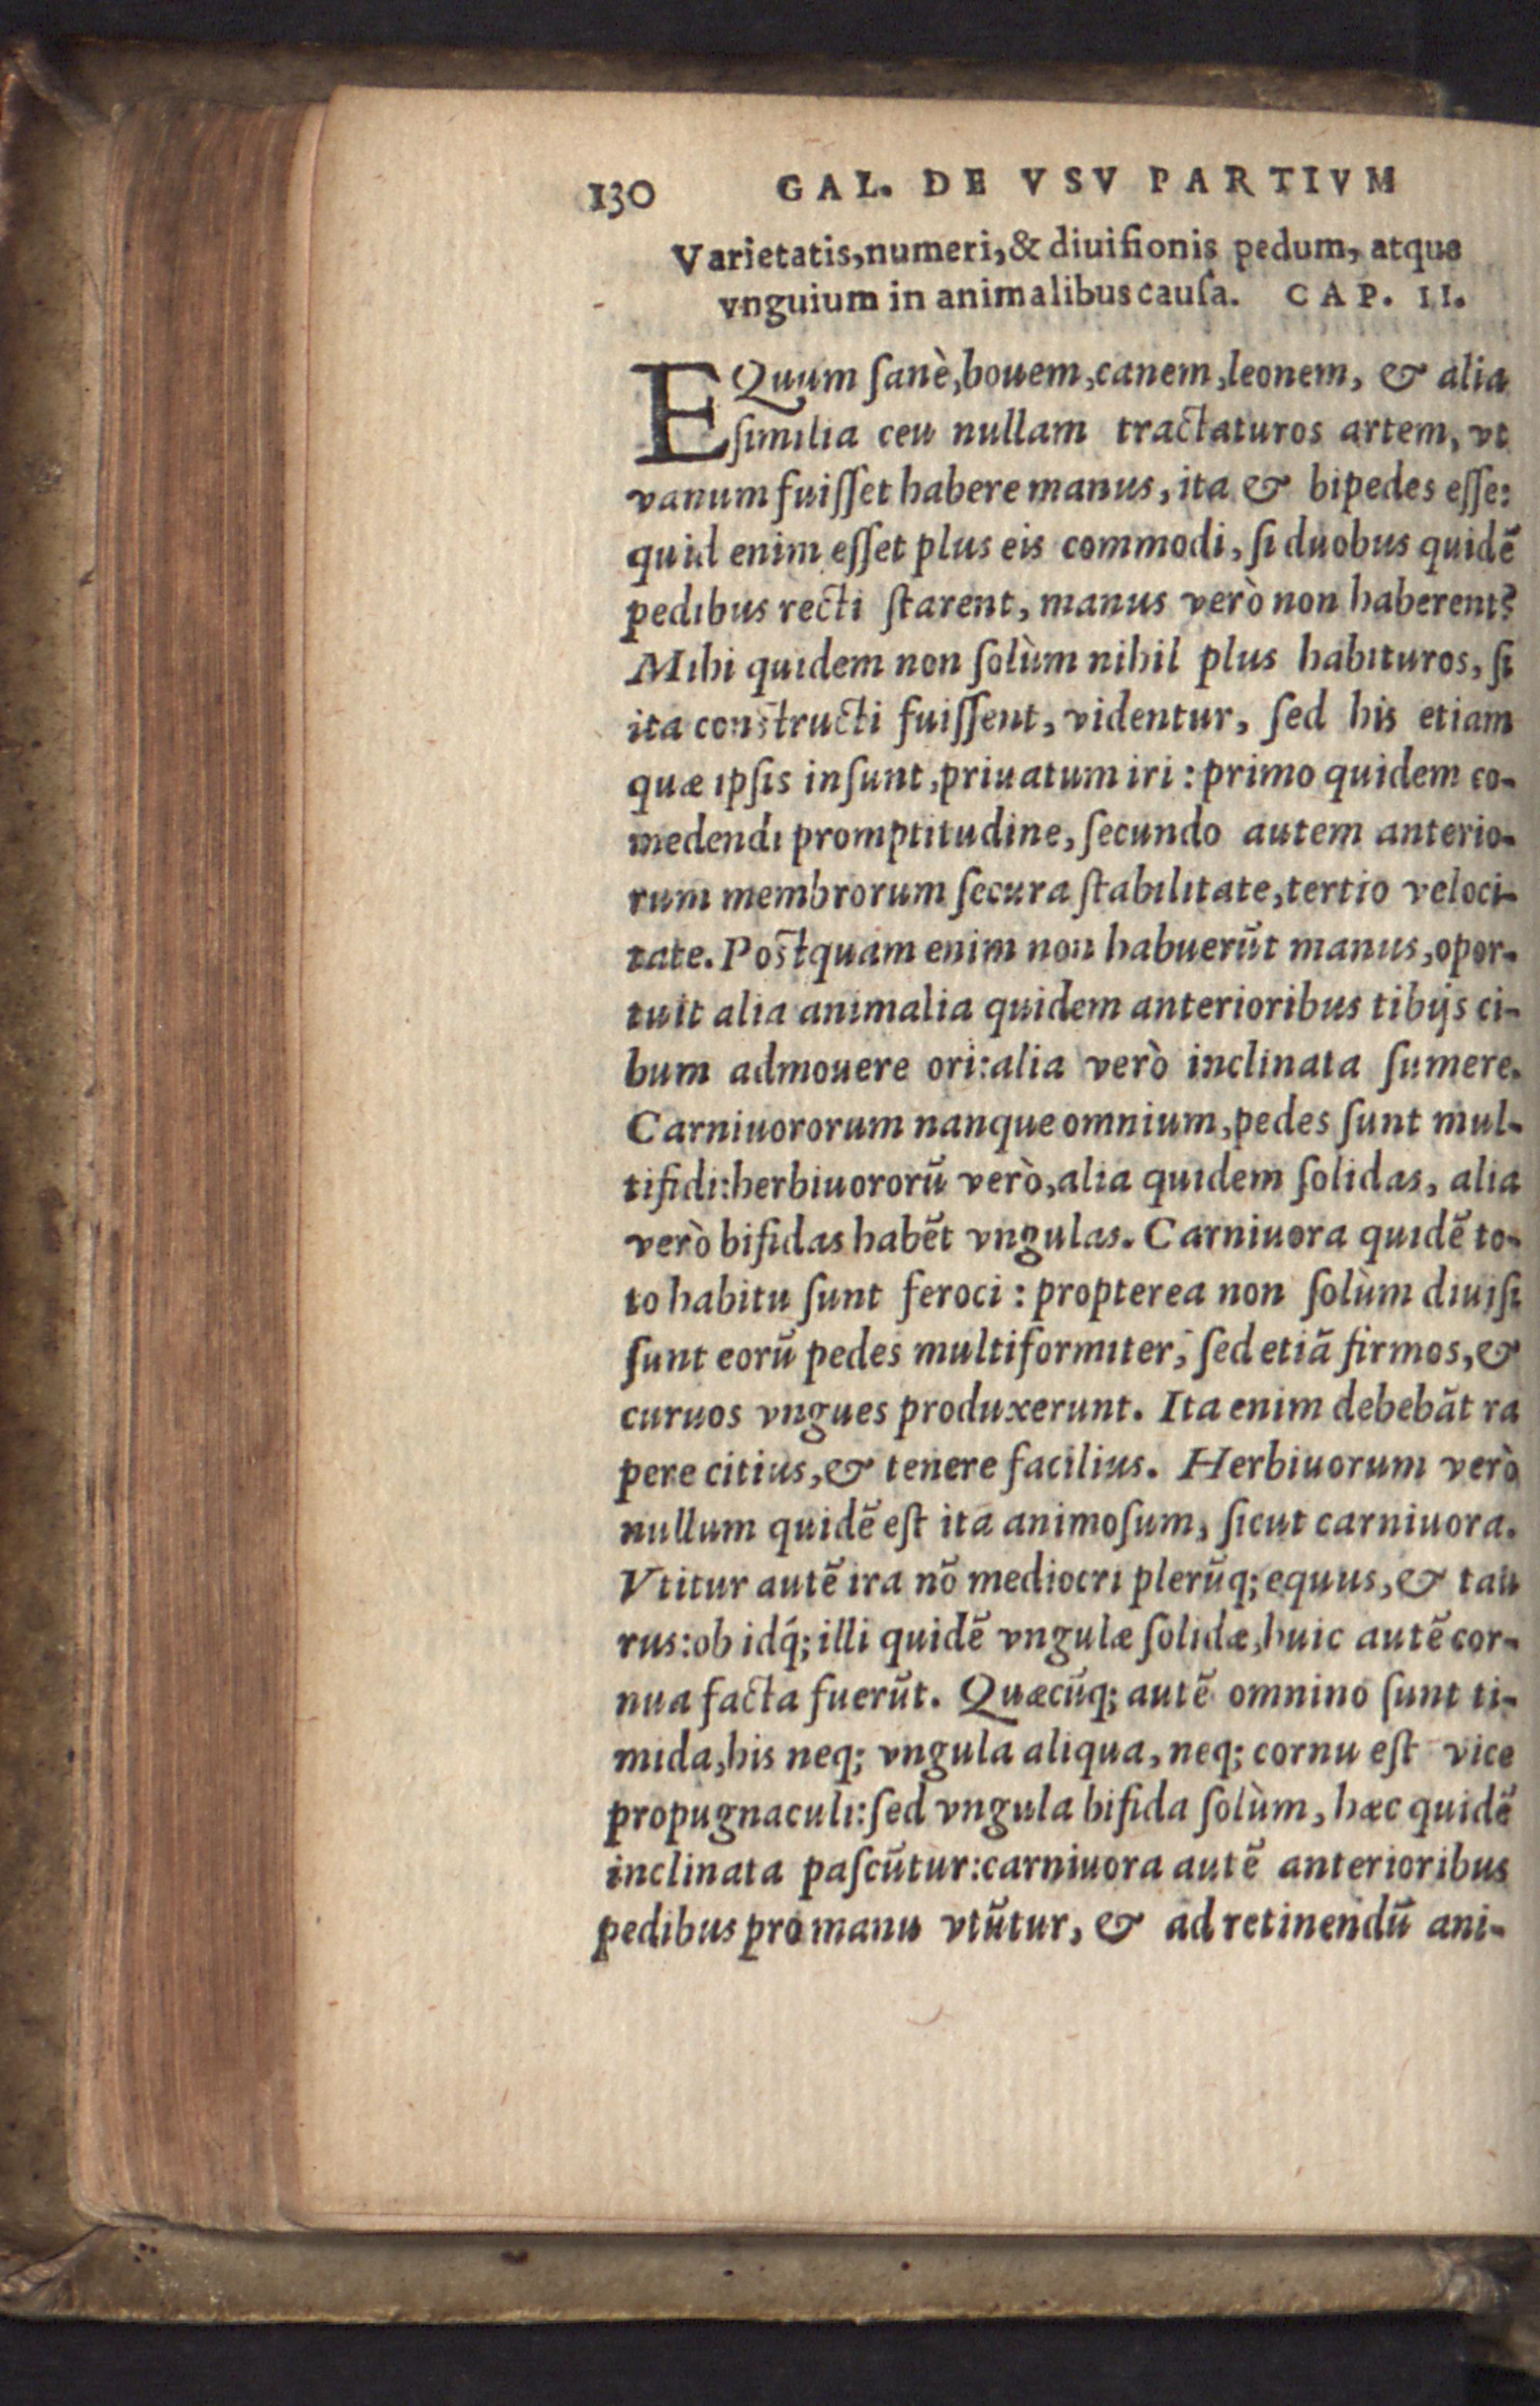 130 GAL. DE VSV PARTIVM
Varietatis,numeri,& diuiſionis pedum, atque
vnguium in animalibus cauſa. CAP. II.
EQuum ſanè,bouem,canem,leonem, & alia
ſimilia ceu nullam tractaturos artem, vt
vanum fuiſſet habere manus, ita & bipedes eſſe:
quid enim eſſet plus eis commodi, ſi duobus quidẽ
pedibus recti ſtarent, manus verò non haberent?
Mihi quidem non ſolùm nihil plus habituros, ſi
ita conſtructi fuiſſent, videntur, ſed his etiam
quæ ipſis inſunt,priuatum iri : primo quidem co-
medendi promptitudine, ſecundo autem anterio-
rum membrorum ſecura ſtabilitate,tertio veloci-
tate. Poſtquam enim non habuerũt manus,opor-
tuit alia animalia quidem anterioribus tibijs ci-
bum admouere ori:alia verò inclinata ſumere.
Carniuororum nanque omnium,pedes ſunt mul-
tifidi:herbiuororũ verò,alia quidem ſolidas, alia
verò bifidas habẽt vngulas. Carniuora quidẽ to-
to habitu ſunt feroci : propterea non ſolùm diuiſi
ſunt eorũ pedes multiformiter, ſed etiã firmos,&
curuos vngues produxerunt. Ita enim debebãt ra
pere citius,& tenere facilius. Herbiuorum verò
nullum quidẽ eſt ita animoſum, ſicut carniuora.
Vtitur autẽ ira nõ mediocri plerũq; equus,& tau
rus:ob idq́; illi quidẽ vngulæ ſolidæ,huic autẽ cor-
nua facta fuerũt. Quæcũq; autẽ omnino ſunt ti-
mida,his neq; vngula aliqua, neq; cornu eſt vice
propugnaculi:ſed vngula bifida ſolùm, hæc quidẽ
inclinata paſcũtur:carniuora autẽ anterioribus
pedibus pro manu vtũtur, & ad retinendũ ani-